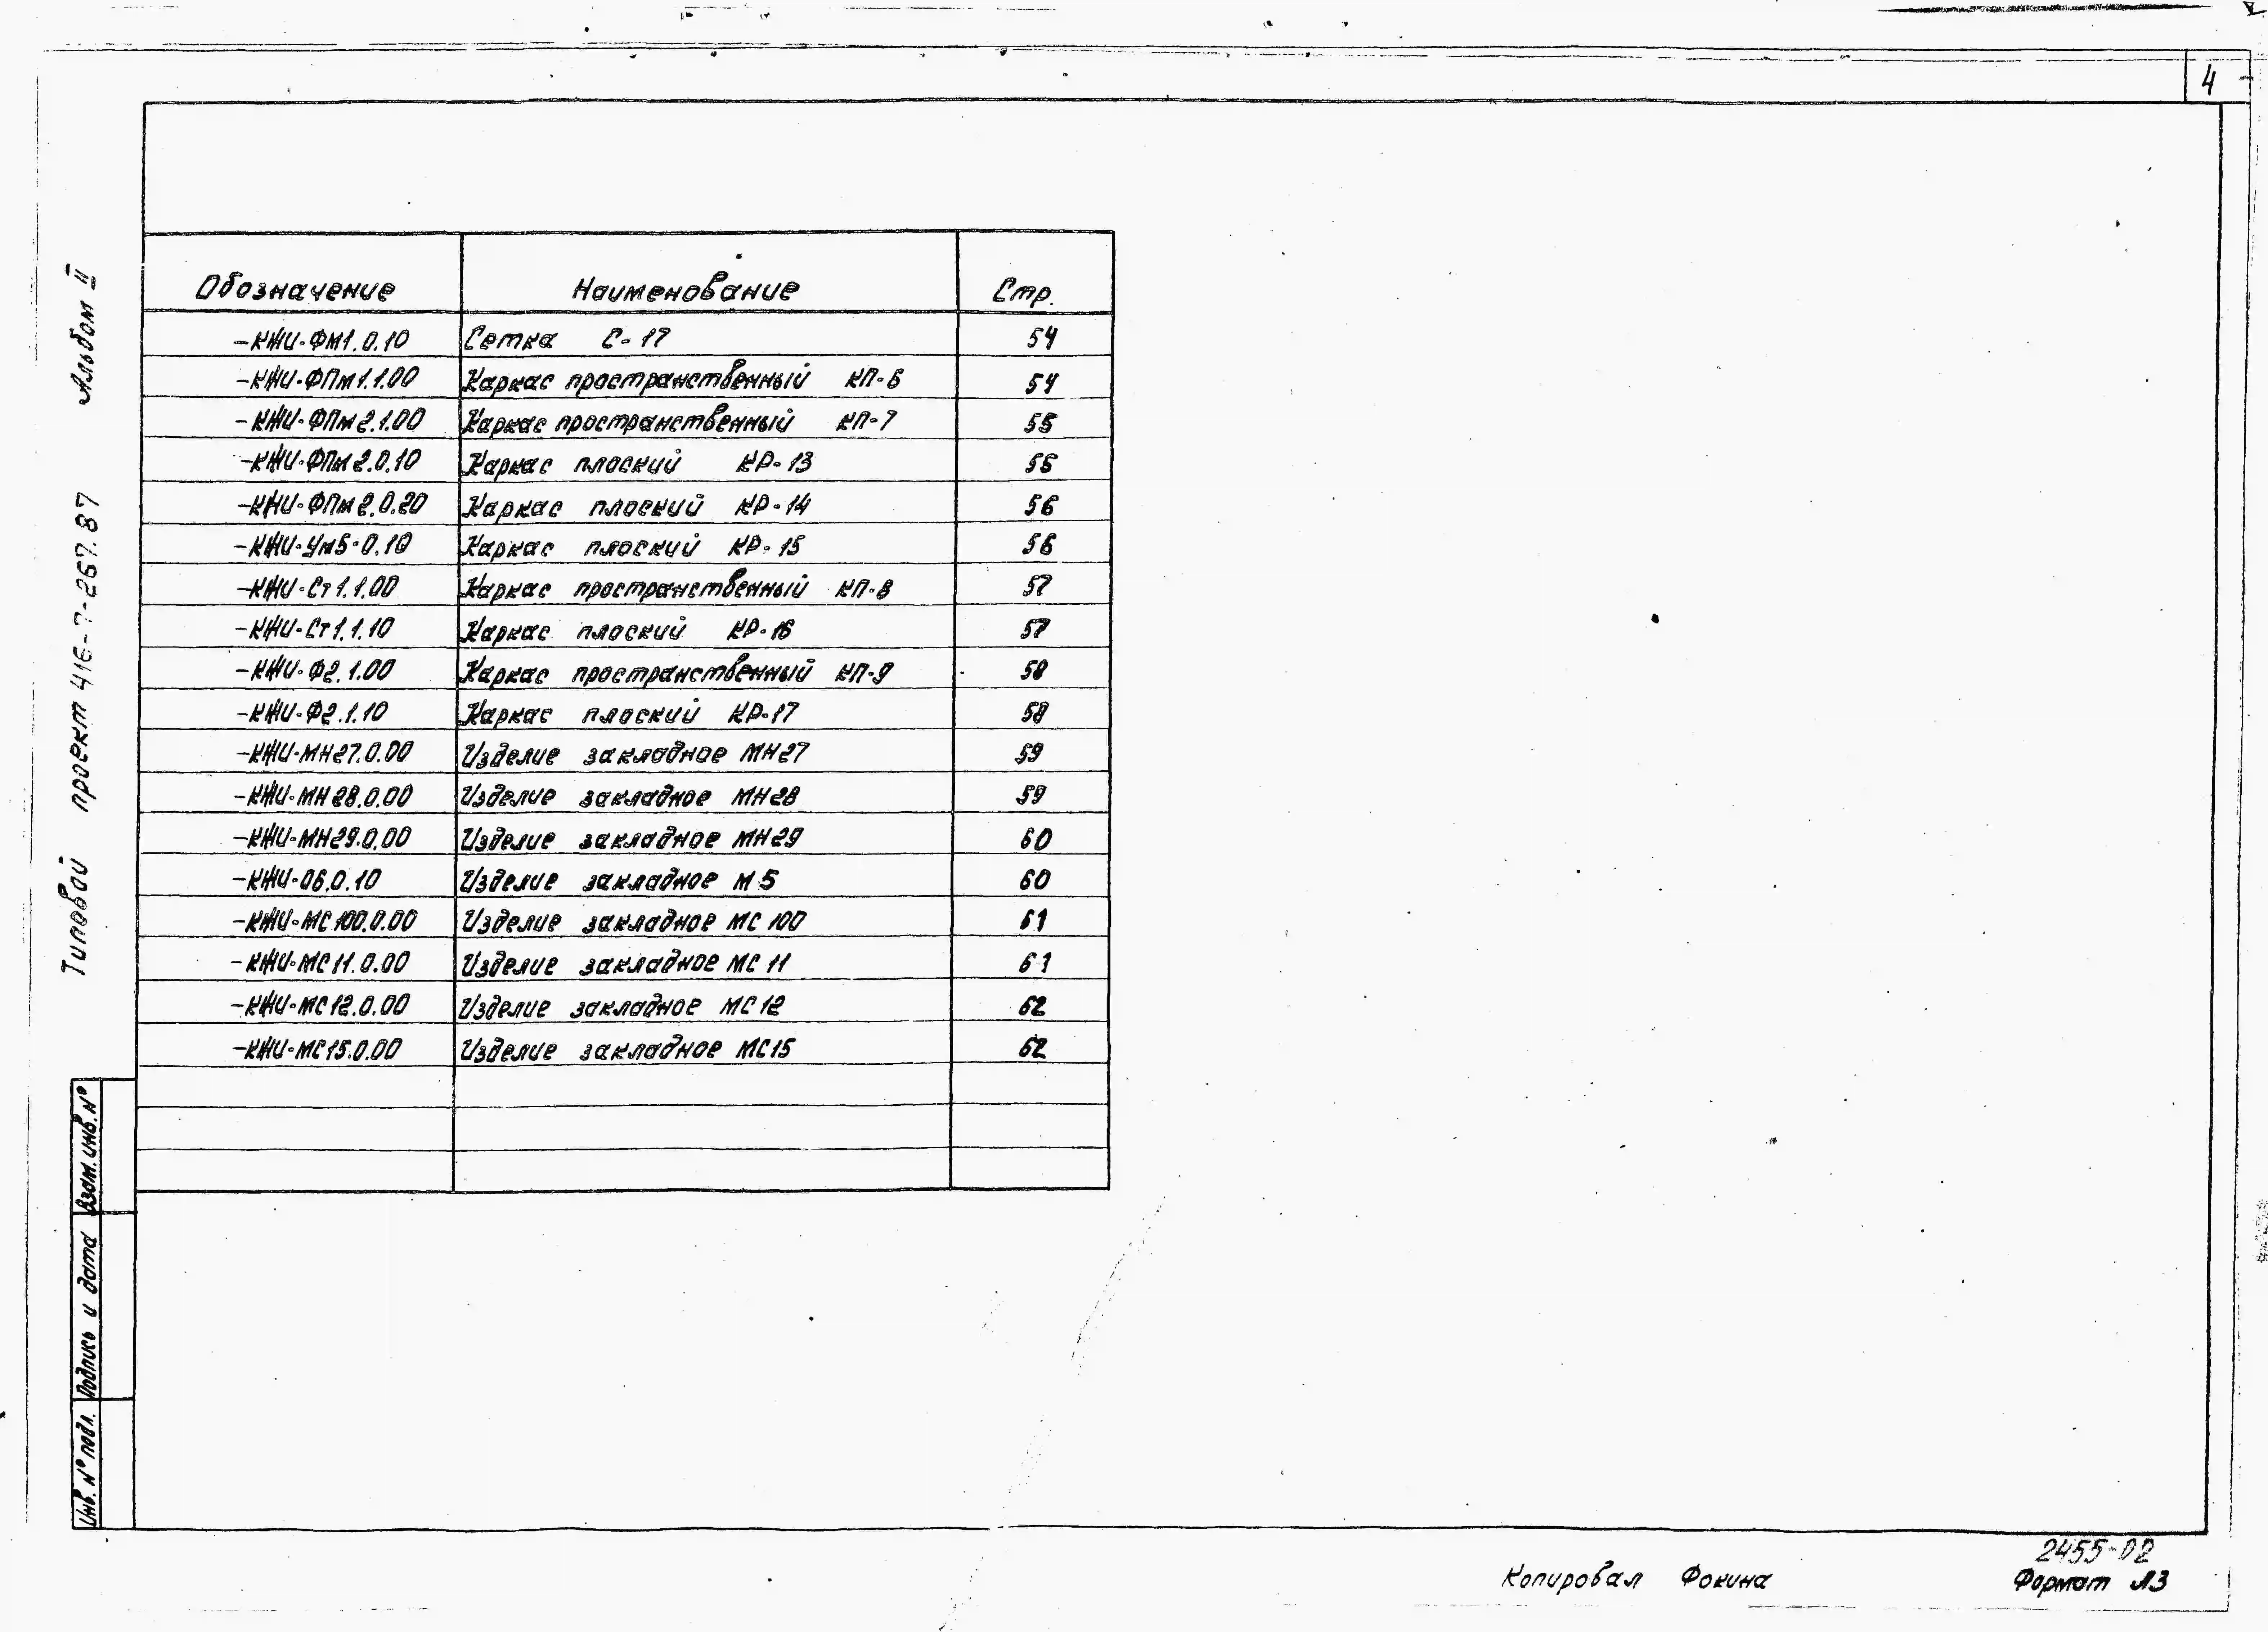 4
Типовой проект 416-7-267.87 Альбом II
Обозначение Наименование Стр.
-КЖИ-ФМ1.0.10 Сетка С-17 54
-КЖИ-ФПм1.1.00 Каркас пространственный КП-6 54
-КЖИ-ФПм2.1.00 Каркас пространственный КП-7 55
-КЖИ-ФПм2.0.10 Каркас плоский КР-13 55
-КЖИ-ФПм2.0.20 Каркас плоский КР-14 56
-КЖИ-Ум5-0.10 Каркас плоский КР-15 56
-КЖИ-Ст1.1.00 Каркас пространственный КП-8 57
-КЖИ-Ст1.1.10 Каркас плоский КР-16 57
-КЖИ-Ф2.1.00 Каркас пространственный КП-9 58
-КЖИ-Ф2.1.10 Каркас плоский КР-17 58
-КЖИ-МН27.0.00 Изделие закладное МН27 59
-КЖИ-МН28.0.00 Изделие закладное МН28 59
-КЖИ-МН29.0.00 Изделие закладное МН29 60
-КЖИ-06.0.10 Изделие закладное М5 60
-КЖИ-МС100.0.00 Изделие закладное МС100 61
-КЖИ-МС11.0.00 Изделие закладное МС11 61
-КЖИ-МС12.0.00 Изделие закладное МС12 62
-КЖИ-МС15.0.00 Изделие закладное МС15 62
Взам. инв. №
Подпись и дата
Инв. № подл.
2455-02
Копировал Фокина Формат А3